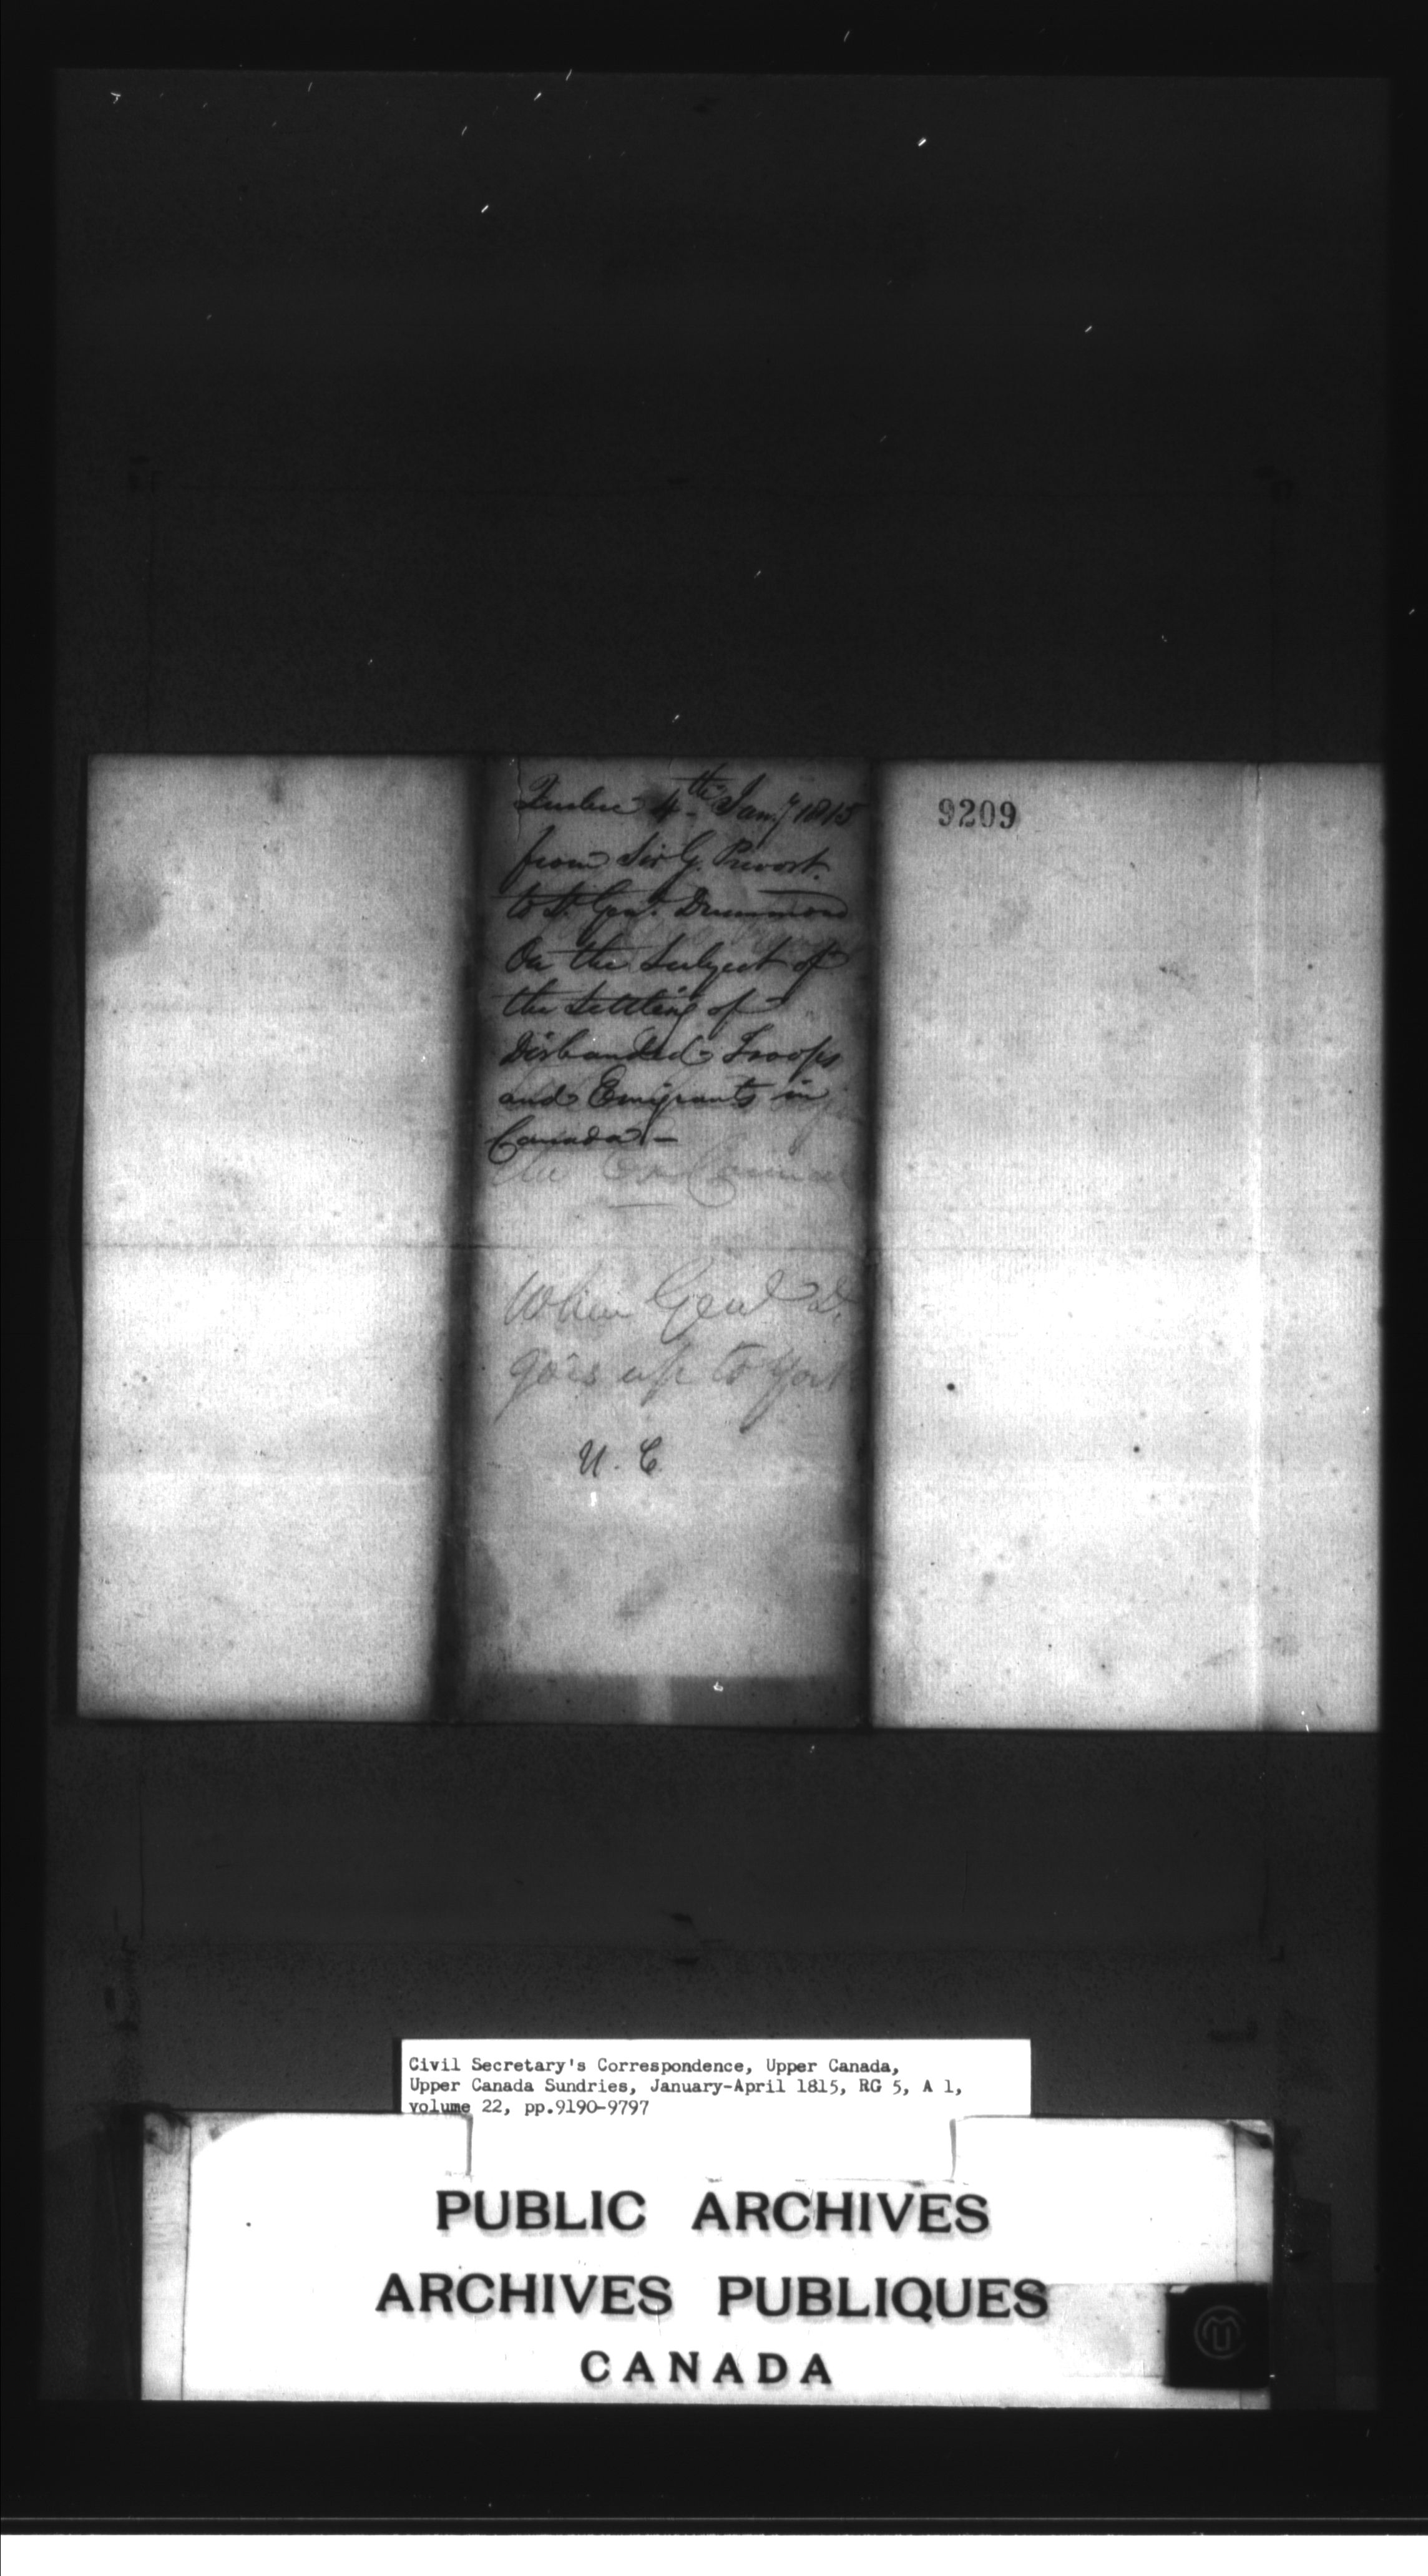 Quebec 4th Jany 1815
from Sir G. Prevost
to Lt. Genl. Drummond
On the Subject of
the Settling of
Disbanded Troops
and Emigrants in
Canada. —
the Ex Council
When Genl D.
goes up to York
U. C.
9209
Civil Secretary's Correspondence, Upper Canada,
Upper Canada Sundries, January-April 1815, RG 5, A 1,
volume 22, pp.9190-9797
PUBLIC ARCHIVES
ARCHIVES PUBLIQUES
CANADA